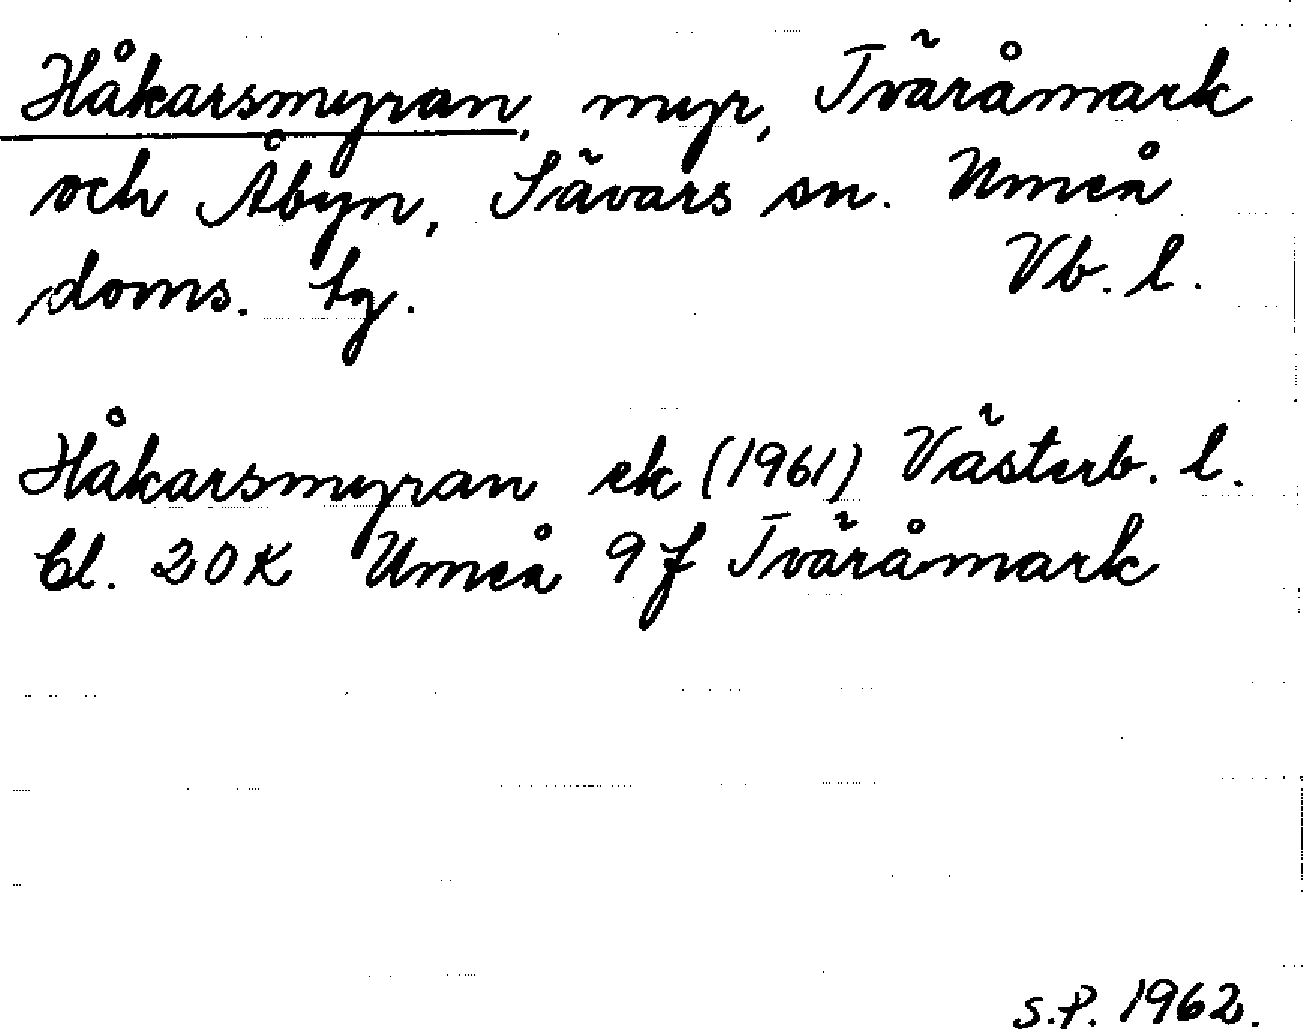 Håkarsmyran, myr, Tväråmark
och Åbyn, Sävars sn. Umeå
doms. tg. Vb. l.
Håkarsmyran ek (1961) Västerb. l.
bl. 20 K Umeå 9 f Tväråmark
S.P. 1962.